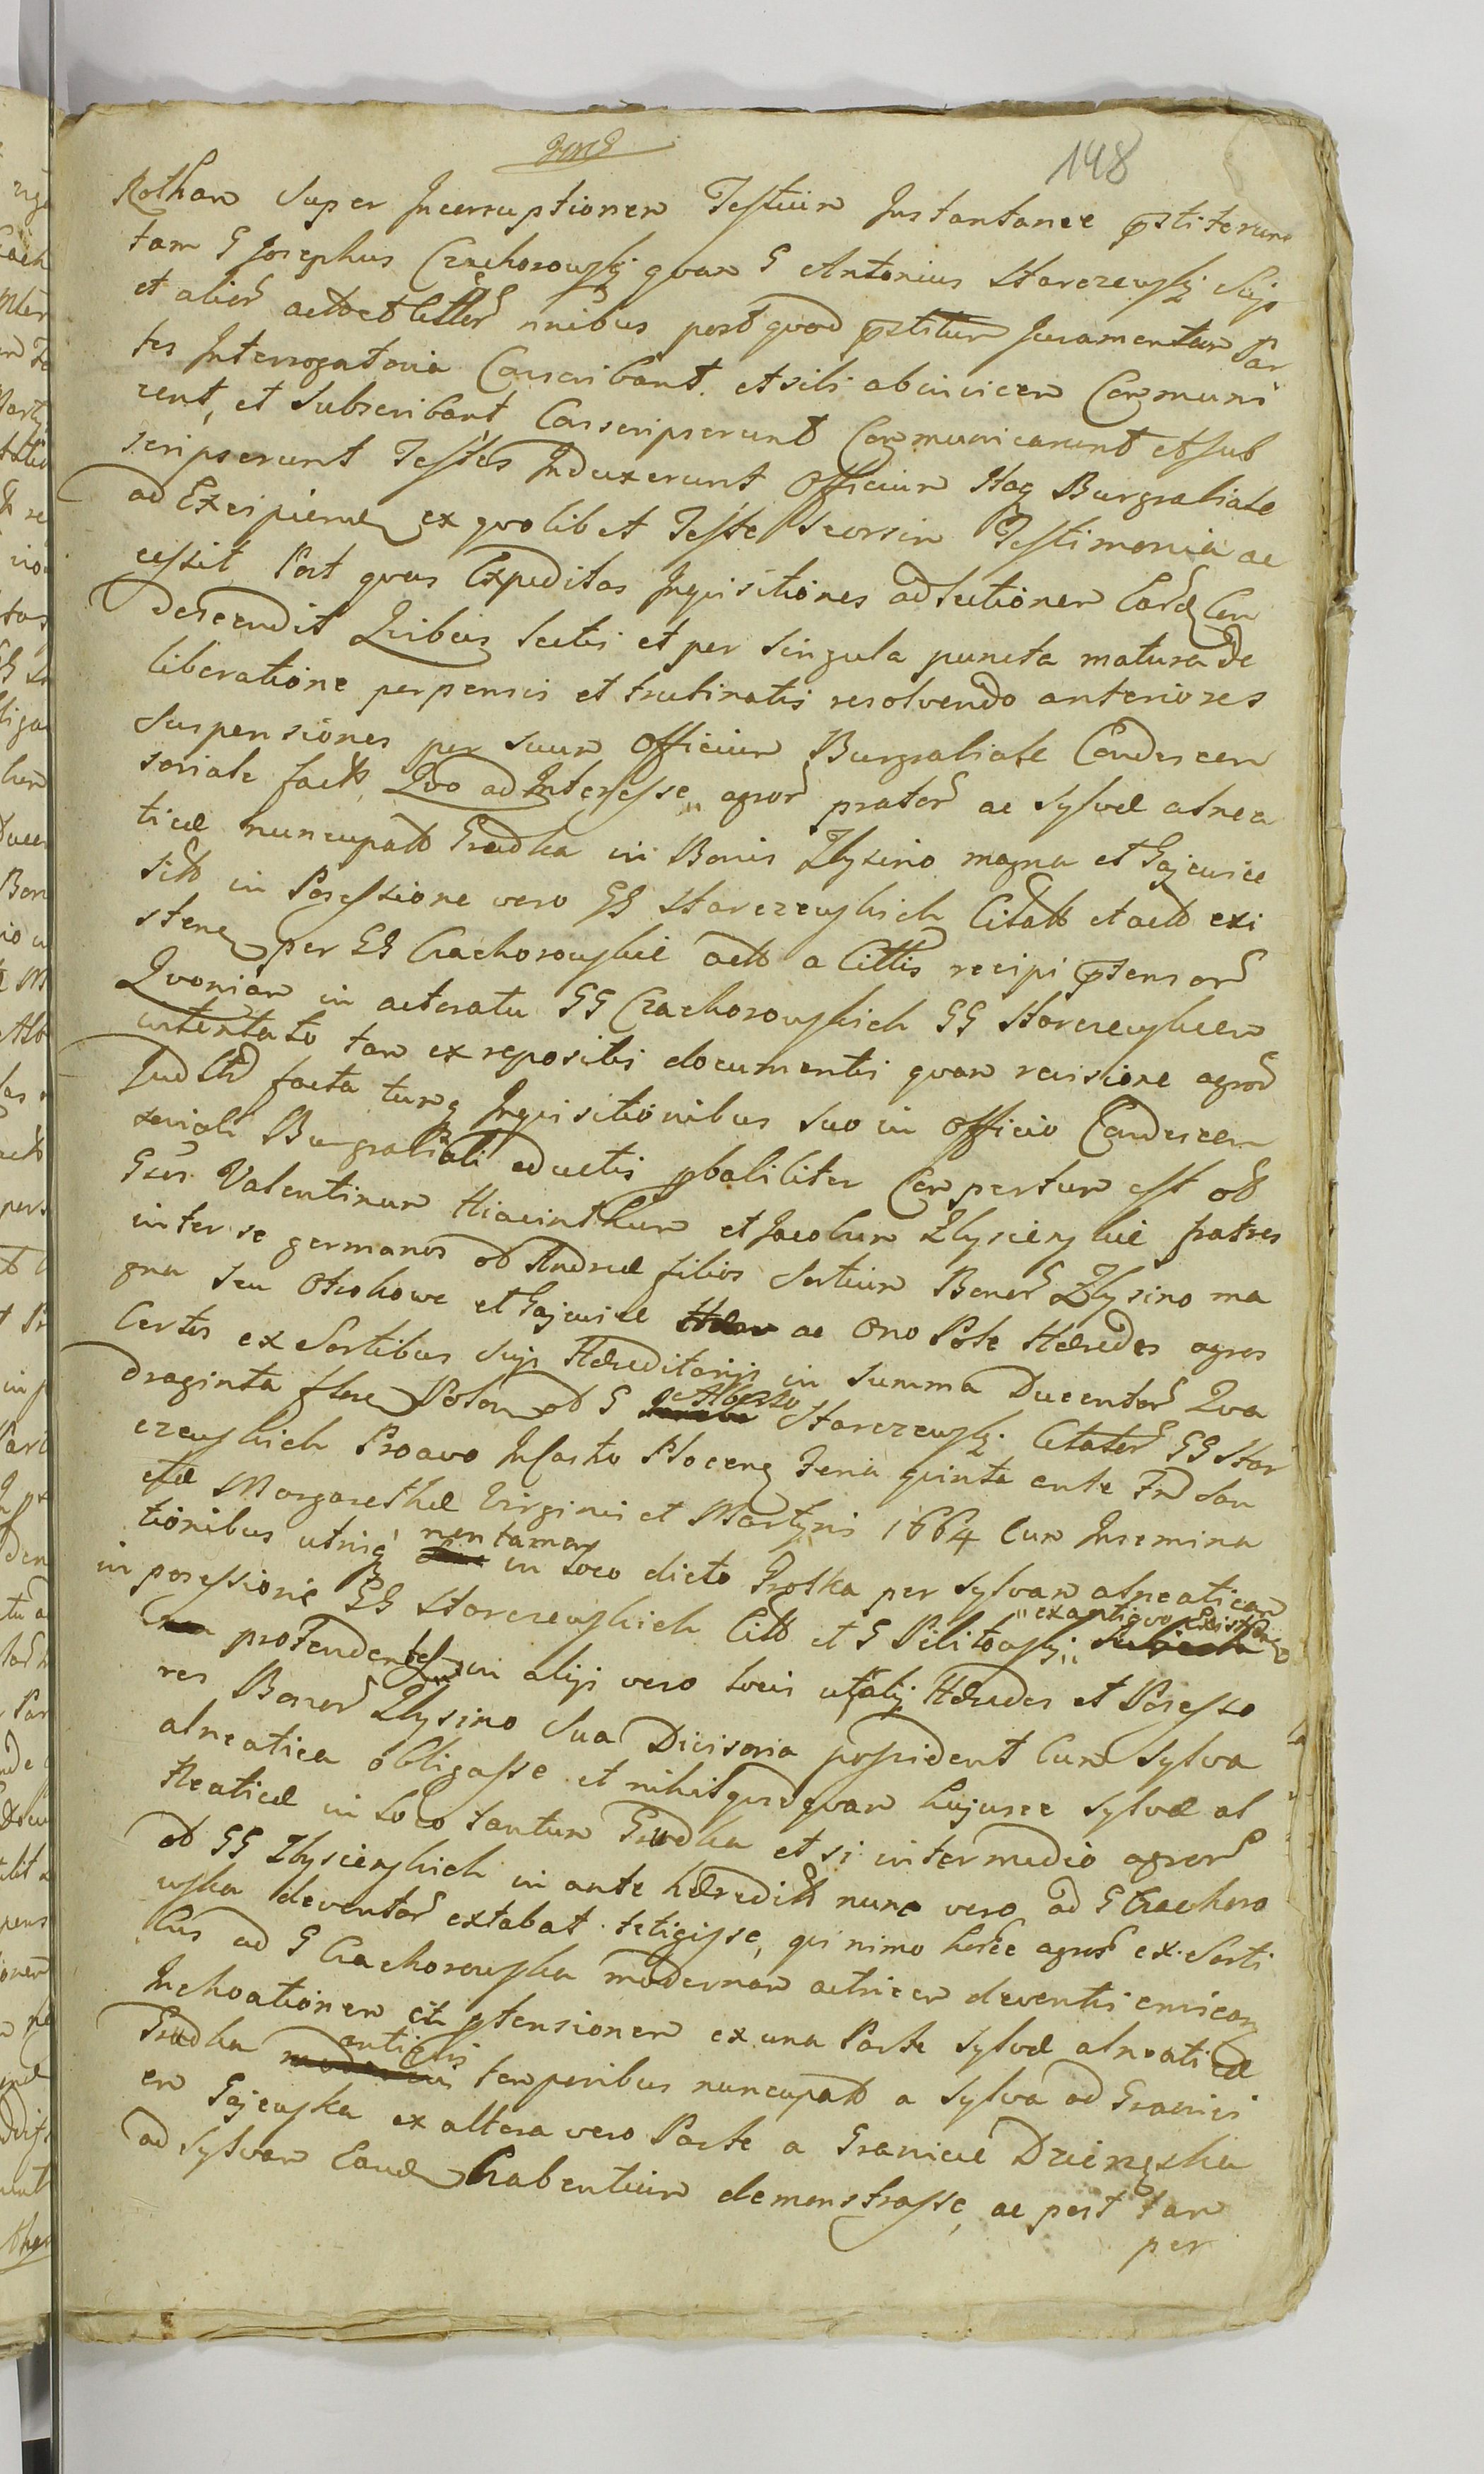 148
Rotham super Incorruptionem Testium Instantanee pstiterunt
tam G Josephus Czachorowskj quam G Antonius Starczewskj Suis
et alior actoet Citter nnibus post quod pstitum Juramentum Par
tes Interrogatoria Conscribant et sibi abinvicem Communi
cent, et Subscribant Conscripserunt Communicarunt et sub
scripserunt Testes Induxerunt Officium Haq Burgrabiale
ad Excipiend ex quolibet Teste Seorsim Testimonia ac
cessit Post quas Expeditas Inquisitiones ad lectionem Card
descendit Quibus lectis et per singula puncta matura de
liberatione perpensis et trutinatis resolvendo anteriores
suspensiones per suum Officium Burgrabiale Condescen
soriale factt Quo ad Interesse agror prator ac Sylvæ alnea
ticæ nuncupatt Grudka in Bonis Zlysino magna et Gajewice
sitt in Possessione vero GG Starczewskich Citatt et actt exi
stend per GG Czachorowskie actt a Cittis recipi ptensor
Quoniam in actoratu GG Czachorowskich GG Starczewskim
intentato tam ex repositis documentis quam revisione agror
Judltr facta tumq Inquisitionibus suo in Officio Condescen
soriali Burgrabiali eductis pbabiliter Compertum est ob
Gsos Valentinum Hiacinthum et Jacobum Zlysienskie fratres
inter se germanos ob Andreæ filios Sortium Bonor Zlysino ma
gna seu Otiokowe et Gajewice ac Ono Pote Hæredes agros
Certos ex Sortibus Suis Hæreditarijs in Summa Ducentor Qua
draginta flor Polon ob G Alberto Starczewskj Citator GG Star
czewskich Proavo In Castro Plocen Feria quinta ante Fm San
ctæ Margarethæ Virginis et Martyris 1664 Cum Insemina
tionibus utriq non tamen in loco dicto Grotka per Sylvam alneaticam
in possessione GG Starczewskich Citt et G Pilitowskj ex antiquo existen
protendentes in alijs vero locis uti alij Hæredes et Possesso
res Bonor Zlysino Sua Divisoria possident Cum Sylva
alneatica obligasse et nihil quidquam hujusce Sylvæ al
neaticæ in loco tantum Grudka et si intermedio agror
ob GG Zlysienskich in ante hæreditt nunc vero ad G Czachoro
wska deventor extabat tetigisse, qui nimo hosce agros ex Sorti
bus ad G Czachorowska modernam actricem deventis
Inchoationem et ptensionem ex una Parte Sylvæ alneaticæ
Grudka antiquis temporibus nuncupatt a Sylva ad Granici
em Gajewska ex altera vero Parte a Granicie Dziengska
ad Sylvam Eand habentium demonstrasse, ac post tam
per